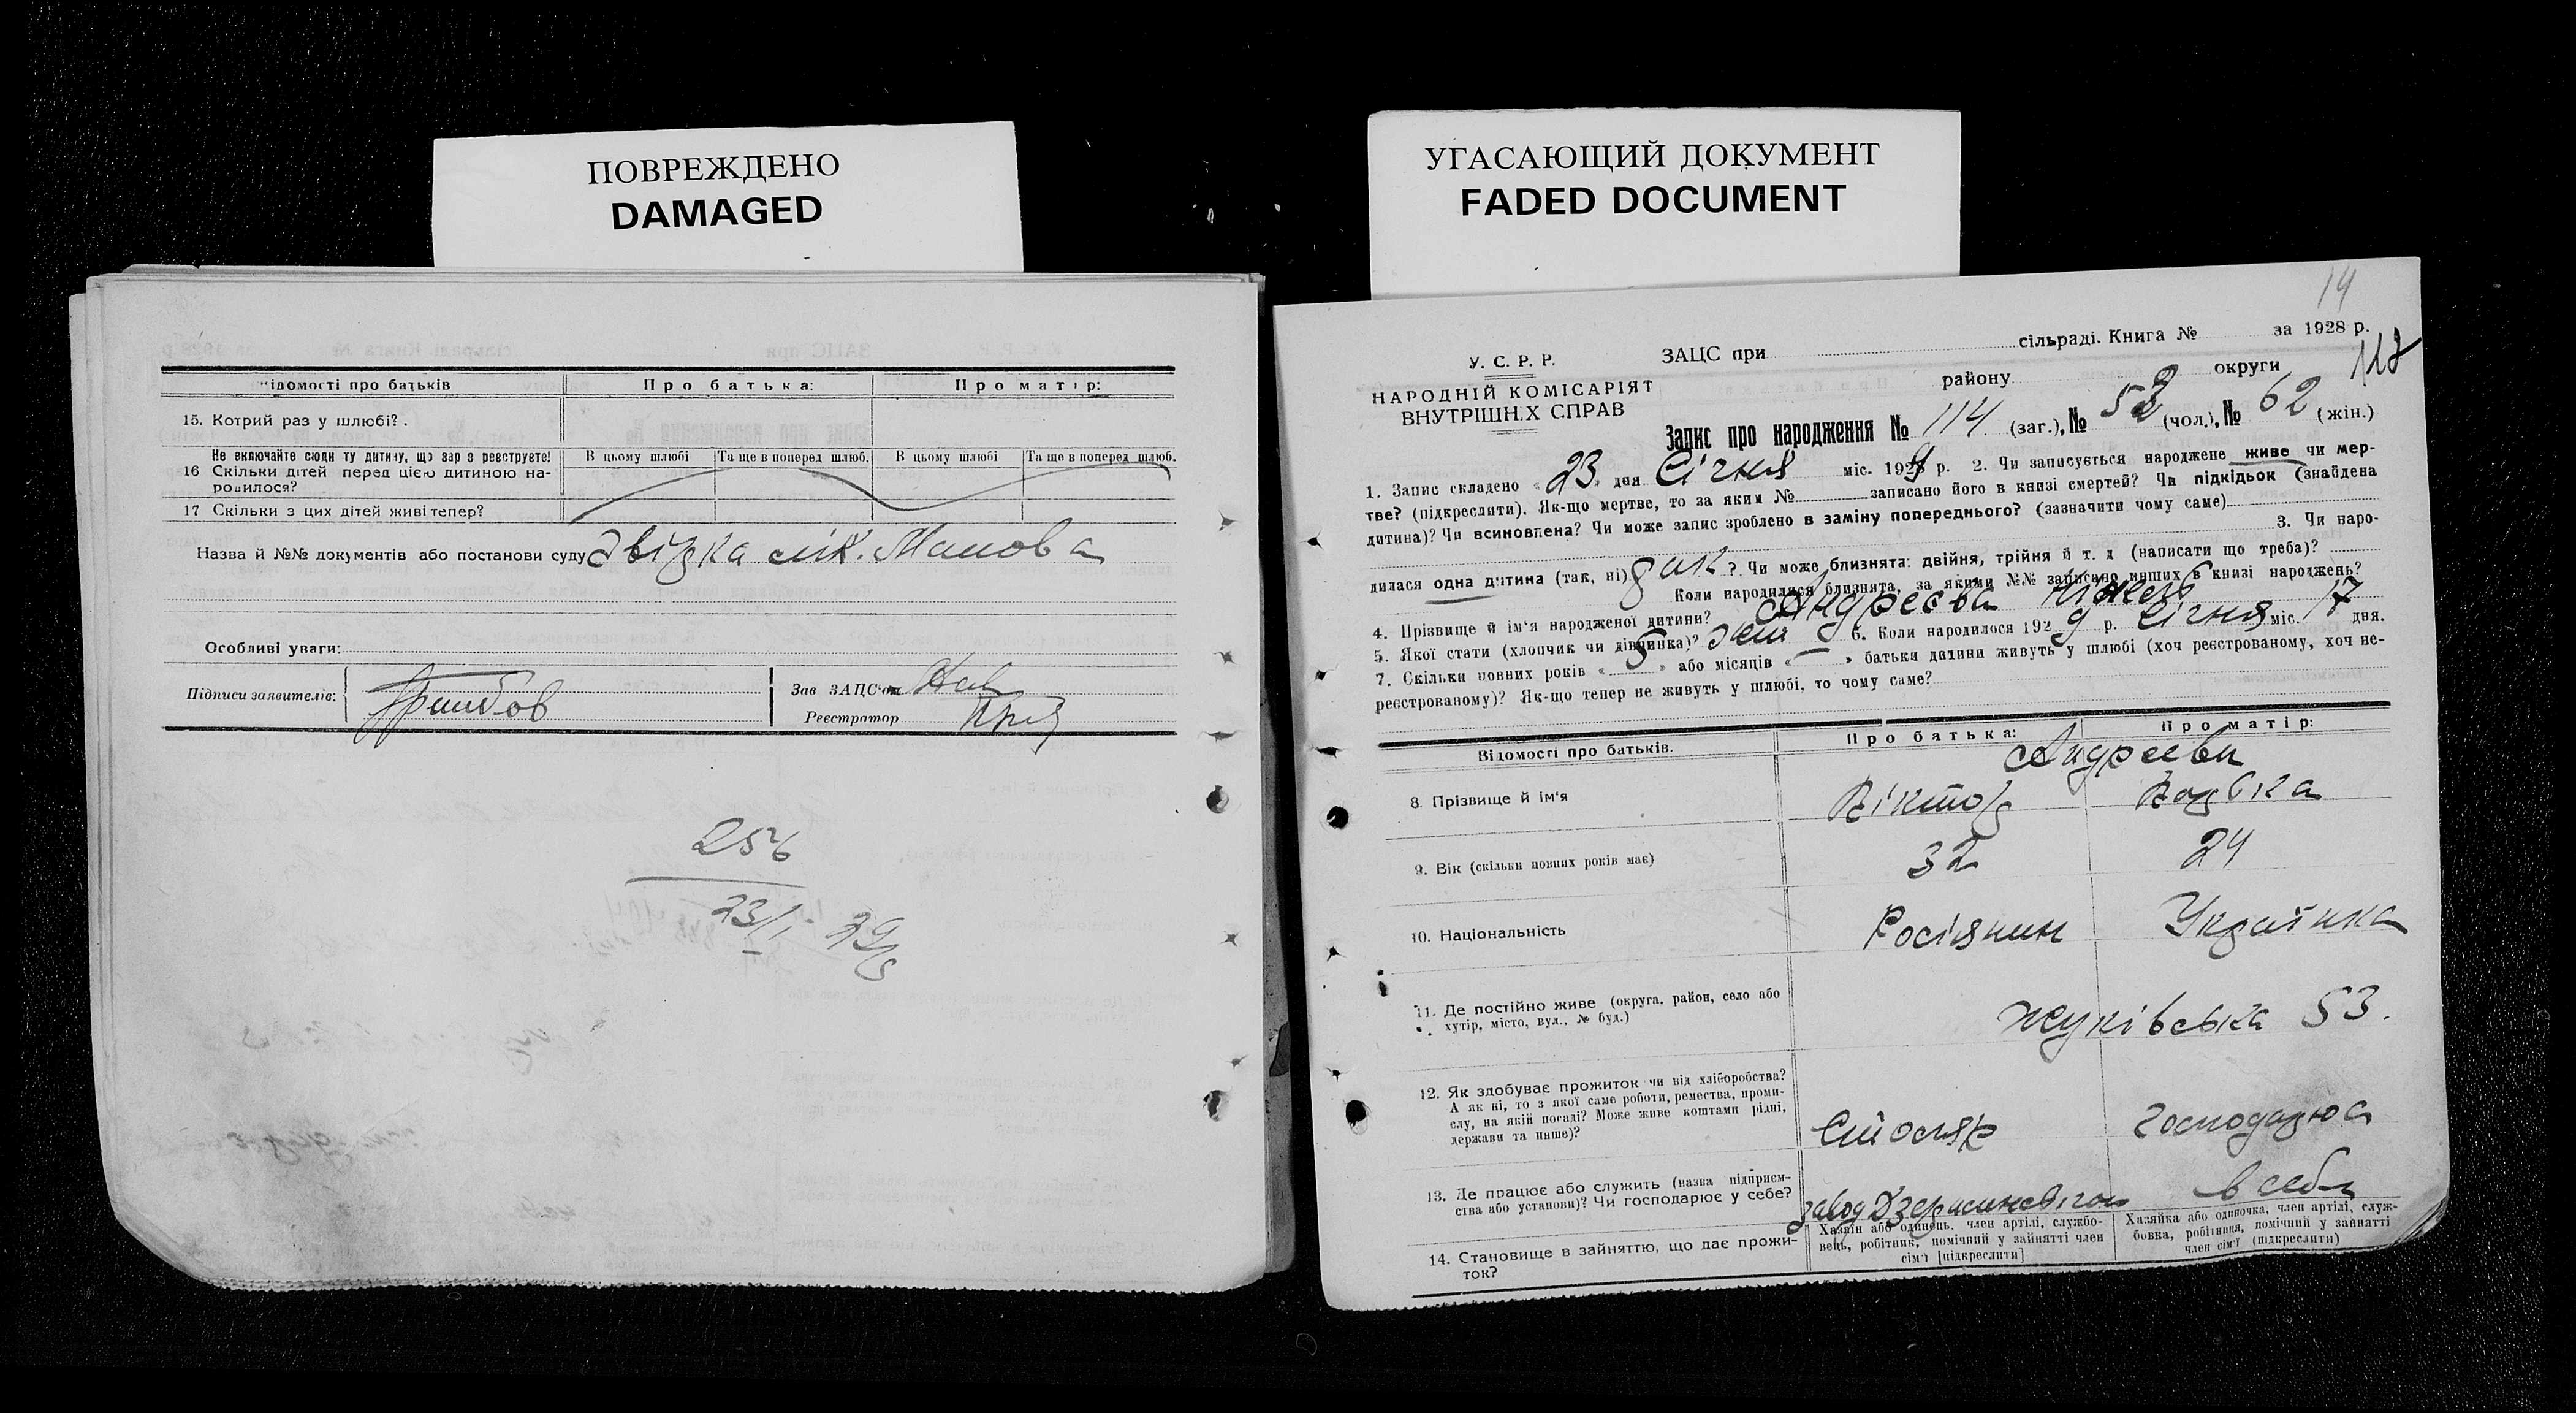 ПОВРЕЖДЕНО
DAMAGED
УГАСАЮЩИЙ ДОКУМЕНТ
FADED DOCUMENT
Відомості про батьків
Про батька:
Про матір:
15. Котрий раз у шлюбі?.
Не включайте сюди ту дитину, що зараз реєструєте!
16 Скільки дітей перед цією дитиною на-
родилося?
В цьому шлюбі
Та ще в поперед шлюб.
В цьому шлюбі
Та ще в поперед шлюб.
17 Скільки з цих дітей живі тепер?
Назва й №№ документів або постанови суду
Особливі уваги:
Підписи заявителів:
Зав ЗАЦС'ом
Реєстратор
256
23/I 29
14
У. С. Р. Р.
НАРОДНІЙ КОМІСАРІЯТ
ВНУТРІШНІХ СПРАВ
ЗАЦС при сільраді. Книга № за 1928 р.
району округи
Запис про народження № 114 (заг.), № 52 (чол.), № 62 (жін.)
1. Запис складено „23“ дня Січня міс. 1929 р. 2. Чи записується народжене живе чи мер-
тве? (підкреслити). Як-що мертве, то за яким № записано його в книзі смертей? Чи підкідьок (знайдена
дитина)? Чи всиновлена? Чи може запис зроблено в заміну попереднього? (зазначити чому саме)
3. Чи наро-
дилася одна дитина (так, ні) так? Чи може близнята: двійня, трійня й т. д (написати що треба)?
Коли народилися близнята, за якими №№ записано инших в книзі народжень?
4. Прізвище й ім'я народженої дитини? Андреєва
5. Якої статі (хлопчик чи дівчинка)? 6. Коли народилося 1929 р. Січня міс. 17 дня.
7. Скільки повних років „5“ або місяців „—“ батьки дитини живуть у шлюбі (хоч реєстрованому, хоч не-
реєстрованому)? Як-що тепер не живуть у шлюбі, то чому саме?
Відомості про батьків.
Про батька:
Про матір:
Андреєви
8. Прізвище й ім'я
Віктор
9. Вік (скільки повних років має)
32
24
10. Національність
Росіянин
Українка
11. Де постійно живе (округа, район, село або
хутір, місто, вул., № буд.)
Жуківська 53.
12. Як здобуває прожиток чи від хліборобства?
А як ні, то з якої саме роботи, ремества, проми-
слу, на якій посаді? Може живе коштами рідні,
держави та инше)?
Столяр
господарює
13. Де працює або служить (назва підприєм-
ства або установи)? Чи господарює у себе?
завод Дзержинського
в себе
14. Становище в зайняттю, що дає прожи-
ток?
Хазяін або одинець, член артілі, службо-
вець, робітник, помічний у зайнятті член
сім'ї [підкреслити]
Хазяйка або одиночка, член артілі, служ-
бовка, робітниця, помічний у зайнятті
член сім'ї (підкреслити)